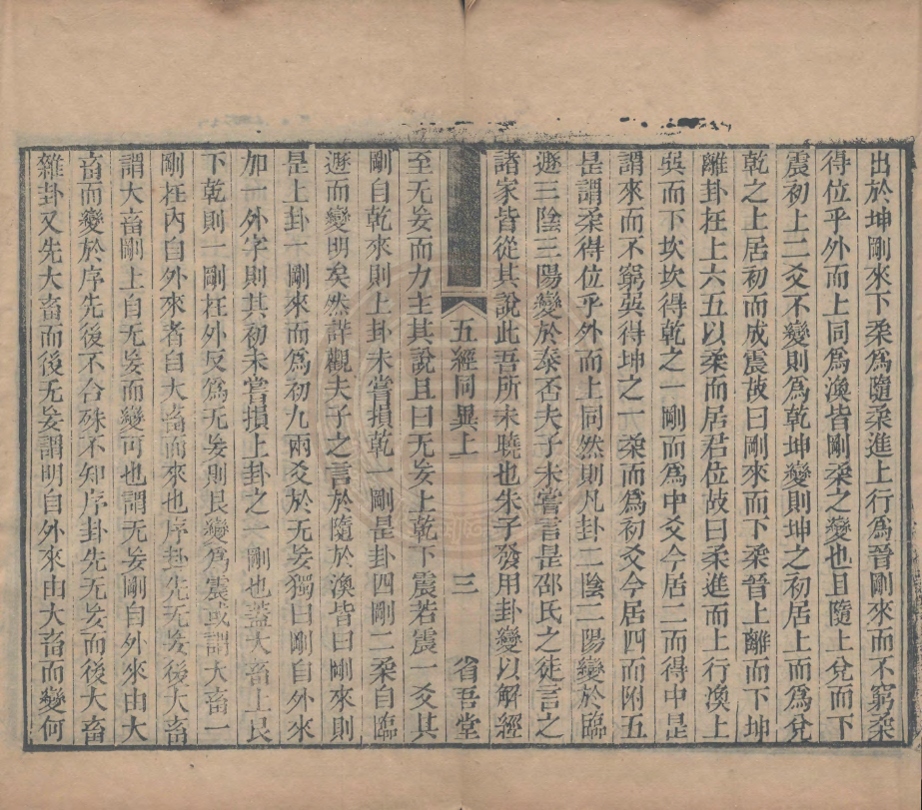 出於坤剛來下柔爲隨柔進上行爲晉剛來而不窮柔
得位乎外而上同爲渙皆剛柔之變也且隨上兌而下
震初上二爻不變則爲乾坤變則坤之初居上而爲兌
乾之上居初而成震故曰剛來而下柔晉上離而下坤
離卦在上六五以柔而居君位故曰柔進而上行渙上
巽而下坎坎得乾之一剛而爲中爻今居二而得中是
謂來而不窮巽得坤之一柔而爲初爻今居四而附五
是謂柔得位乎外而上同然則凡卦二陰二陽變於臨
遯三陰三陽變於泰否夫子未嘗言是邵氏之徒言之
諸家皆從其說此吾所未曉也朱子發用卦變以解經
五經同異上 三 省吾堂
至无妄而力主其說且曰无妄上乾下震若震一爻其
剛自乾來則上卦未嘗損乾一剛是卦四剛二柔自臨
遯而變明矣然詳觀夫子之言於隨於渙皆曰剛來則
是上卦一剛來而爲初九兩爻於无妄獨曰剛自外來
加一外字則其初未嘗損上卦之一剛也蓋大畜上艮
下乾則一剛在外反爲无妄則艮變爲震或謂大畜一
剛在內自外來者自大畜而來也序卦先无妄後大畜
謂大畜剛上自无妄而變可也謂无妄剛自外來由大
畜而變於序先後不合殊不知序卦先无妄而後大畜
雜卦又先大畜而後无妄謂明自外來由大畜而變何